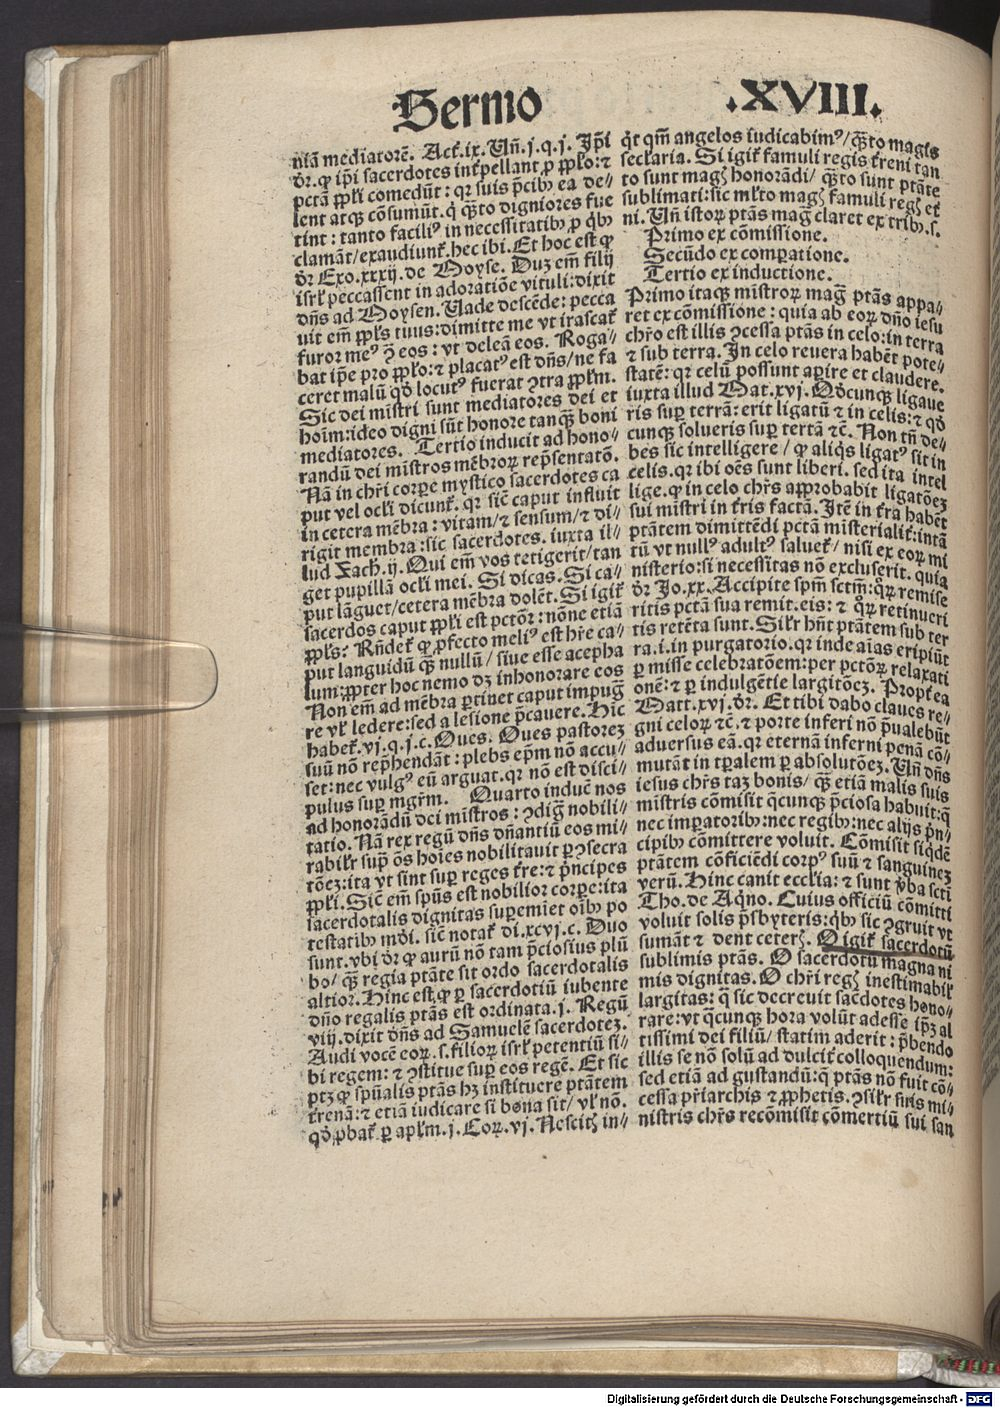 Sermo .XVIII.
niā mediatorē. Act̄.ix.Vn̄.j.q.j. Ip̄i
dr̄.ꝙ ip̄i sacerdotes int̄pellant ꝓ pp̄lo:⁊
pctā pp̄li comedūt: qr suis p̄cibꝰ ea de⸗
lent atqꝫ cōsumūt.q̇ q̄sto digniores fue
rint: tanto faciliꝰ in necessitatibꝰ ꝓ q̇bꝰ
clamāt/exaudiunt̄.hec ibi.Et hoc est ꝙ
dr̄ Exo.xxxij.de Moyse. Duꝫ em̄ filij
isrl̄ peccassent in adoratiōe vituli:dixit
dn̄s ad Moysen.Vade descēde: pecca
uit em̄ pp̄ls tuus:dimitte me vt irascat̄
furor meꝰ ꝯ̄ eos: vt deleā eos. Roga⸗
bat ip̄e pro pp̄lo:⁊ placatꝰ est dn̄s/ne fa
ceret malū qd̄ locutꝰ fuerat ꝯtra pp̄lm.
Sic dei mīstri sunt mediatores dei et
hoīm:ideo digni sūt honore tanqꝫ boni
mediatores. Tertio inducit ad hono⸗
randū dei mīstros mēbroꝝ rep̄sentatō.
Nā in chr̄i corpe mystico sacerdotes ca
put vel ocl̄i dicunt̄. qr sic̄ caput influit
in cetera mēbra: vitam/⁊ sensum/⁊ di⸗
rigit membra:sic sacerdotes. iuxta il⸗
lud Zach.ij.Qui em̄ vos tetigerit/tan
get pupillā ocl̄i mei. Si dicas. Si ca⸗
put lāguet/cetera mēbra dolēt.Si igit̄
sacerdos caput pp̄li est pctōr: nōne etiā
pp̄ls? Rn̄det̄ ꝙ ꝓfecto meliꝰ est hr̄e ca⸗
put languidū q̄ꝫ nullū/ siue esse acepha
lum:ꝓpter hoc nemo dꝫ inhonorare eos
Non em̄ ad mēbra ꝑtinet caput impuḡ
re vl̄ ledere:sed a lesione p̄cauere.Hic̄
habet̄.vj.q.j.c.Oues. Oues pastoreꝫ
suū nō rep̄hendāt: plebs ep̄m nō accu⸗
set:nec vulgꝰ eū arguat.qr nō est disci⸗
pulus suꝑ mgr̄m. Quarto induc̄ nos
ad honorādū dei mīstros: ꝯdiḡ nobili⸗
tatio. Nā rex regū dn̄s dn̄antiū eos mi⸗
rabil̄r sup̄ oēs hoīes nobilitauit ꝑ ꝯsecra
tōeꝫ:ita vt sint suꝑ reges t̄re:⁊ p̄ncipes
pp̄li.Sic̄ em̄ spūs est nobilior corpe:ita
sacerdotalis dignitas suꝑemiet oībꝰ po
testatibꝰ mdi. sic̄ notat̄ di.xcvj.c. Duo
sunt.vbi dr̄ ꝙ aurū nō tam p̄ciosius plū
bo/ q̄ꝫ regia ptāte sit ordo sacerdotalis
altior.Hinc est ꝙ ꝑ sacerdotiū iubente
dn̄o regalis ptās est ordinata.j. Regū
viij.dixit dn̄s ad Samuelē sacerdoteꝫ.
Audi vocē eoꝝ.s.filioꝝ isrl̄ petentiū si⸗
bi regem: ⁊ ꝯstitue suꝑ eos regē. Et sic
ptꝫ ꝙ spūalis ptās hꝫ instituere ptātem
t̄renā:⁊ etiā iudicare si bona sit/ vl̄ nō.
qd̄ ꝓbat̄ ꝑ apl̄m.j.Coꝝ.vj.Nescitꝭ in⸗
q̄t qm̄ angelos iudicabimꝰ/q̄sto magis
seclaria. Si igit̄ famuli regis t̄reni tan
to sunt magꝭ honorādi/ q̄sto sunt ptāte
sublimati:sic ml̄to magꝭ famuli regꝭ et̄
ni.Vn̄ istoꝝ ptās maḡ claret ex tribꝰ.s.
Primo ex cōmissione.
Secūdo ex comꝑatione.
Tertio ex inductione.
Primo itaqꝫ mīstroꝝ maḡ ptās appa⸗
ret ex cōmissione: quia ab eoꝝ dn̄o iesu
chr̄o est illis ꝯcessa ptās in celo:in terra
⁊ sub terra. In celo reuera habēt pote⸗
statē: qr celū possunt aꝑire et claudere.
iuxta illud Mat.xvj. Qd̄cunqꝫ ligaue
ris suꝑ terrā: erit ligatū ⁊ in celis:⁊ qd̄
cunqꝫ solueris suꝑ terrā ⁊c̄. Non tn̄ de⸗
bes sic intelligere/ ꝙ aliq̇s ligatꝰ sit in
celis.qr ibi oēs sunt liberi. sed ita intel
lige.ꝙ in celo chr̄s approbabit ligatōeꝫ
sui mīstri in t̄ris factā. Itē in t̄ra habēt
ptātem dimittēdi pctā misterialit̄:intā
tū vt nullꝰ adultꝰ saluet̄/ nisi ex eoꝝ mi
nisterio:si necessitas nō excluserit. quia
dr̄ Jo.xx.Accipite spm̄ sctm̄:qꝝ remise
ritis pctā sua remit.eis: ⁊ qꝝ retinueri
tis retēta sunt.Sil̄r hn̄t ptātem sub ter
ra.i.in purgatorio.qr inde aīas eripiūt
ꝑ misse celebratōem:per pctōꝝ relaxati
onē: ⁊ ꝑ indulgētie largitōeꝫ. Propt̄ea
Matt.xvj.dr̄. Et tibi dabo claues re⸗
gni celoꝝ ⁊c̄.⁊ porte inferi nō p̄ualebūt
aduersus eā.qr eternā inferni penā cō⸗
mutāt in tꝑalem ꝑ absolutōeꝫ.Vn̄ dn̄s
iesus chr̄s taꝫ bonis/ q̄ꝫ etiā malis suis
mīstris cōmisit q̄cunqꝫ p̄ciosa habuit:q̄
nec imꝑatoribꝰ:nec regibꝰ:nec alijs p̄n⸗
cipibꝰ cōmittere voluit. Cōmisit siq̇dē
ptātem cōficiēdi corpꝰ suū ⁊ sanguineꝫ
verū.Hinc canit eccl̄ia: ⁊ sunt v̄ba scti
Tho.de Aq̇no. Cuius officiū cōmitti
voluit solis p̄sbyteris:q̇bꝰ sic ꝯgruit vt
sumāt ⁊ dent ceterꝭ. O igit̄ sacerdotū
sublimis ptās. O sacerdotū magna ni
mis dignitas.O chr̄i regꝭ inestimabil̄
largitas: q̄ sic decreuit sac̄dotes hono⸗
rare:vt q̄cunqꝫ hora volūt adesse ip̄ꝫ al
tissimi dei filiū/ statim aderit: p̄bendo
illis se nō solū ad dulcit̄ colloquendum:
sed etiā ad gustandū:q̄ ptās nō fuit cō⸗
cessa pr̄iarchis ⁊ ꝓphetis.ꝯsil̄r suis mi⸗
nistris chr̄s recōmisit cōmertiū sui san
Digitalisierung gefördert durch die Deutsche Forschungsgemeinschaft - DFG